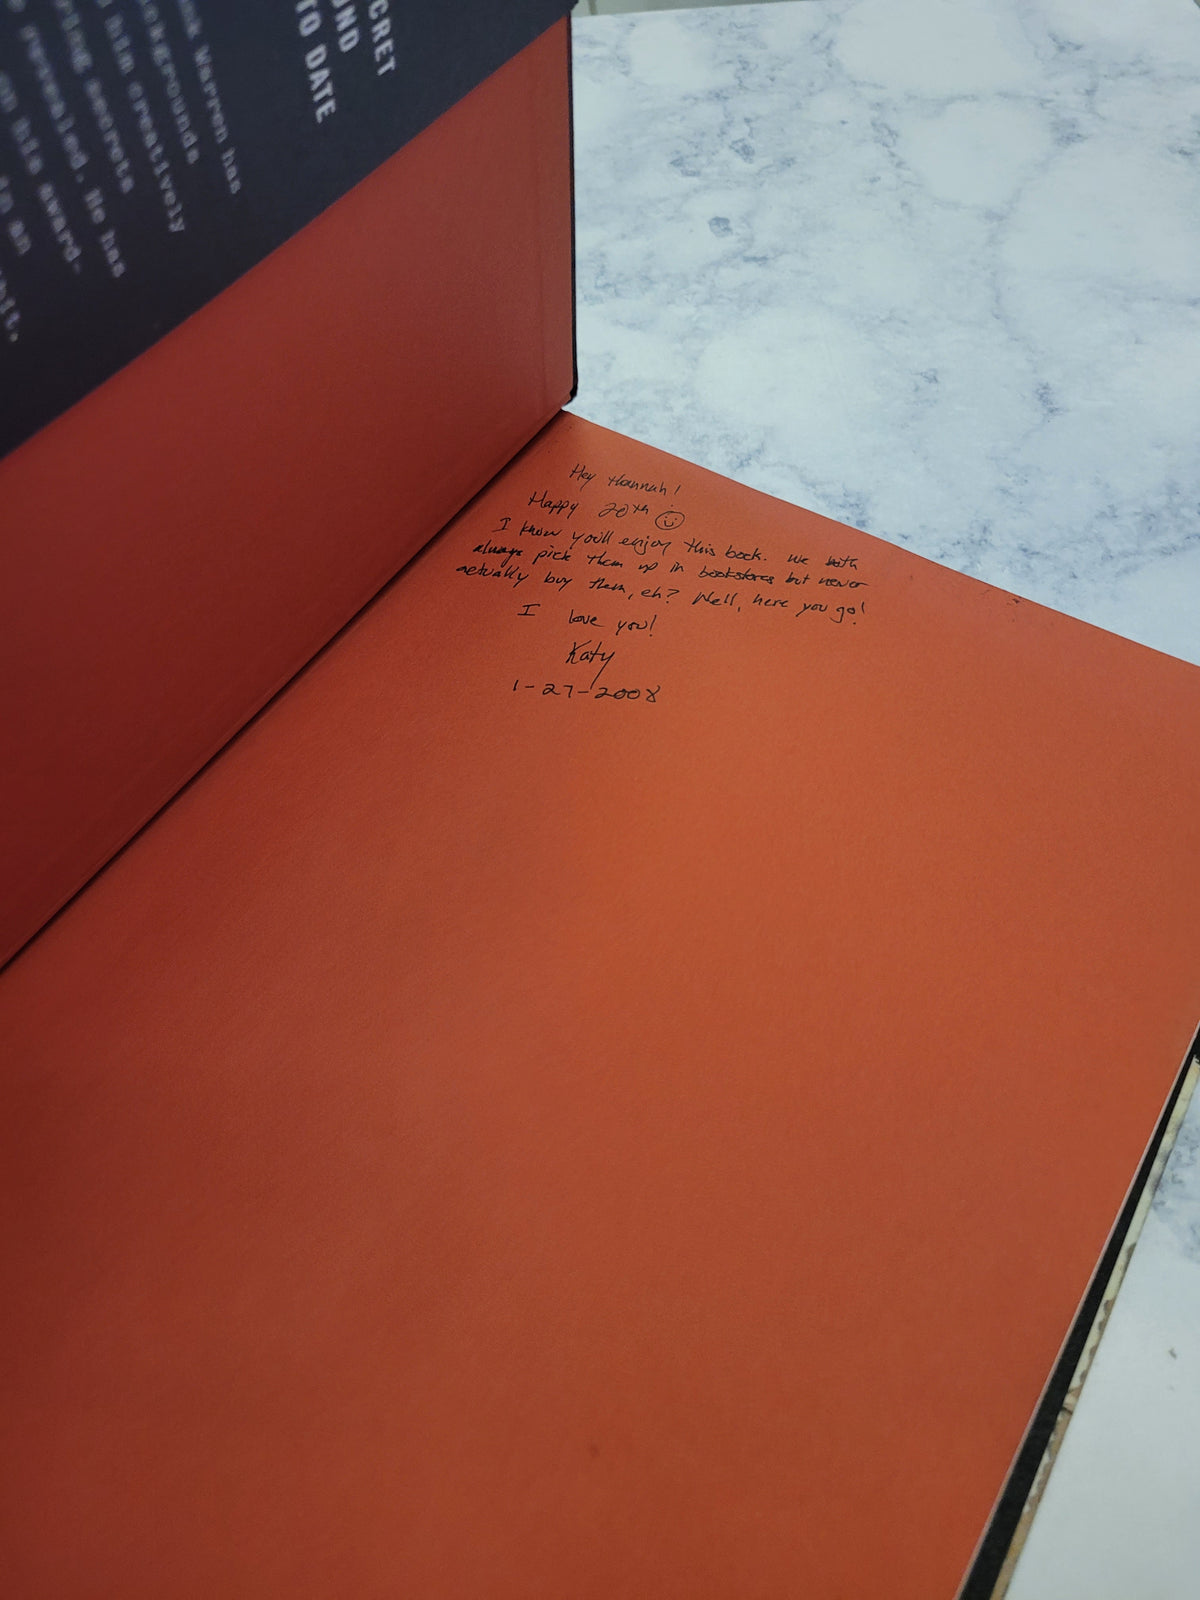 CRET
UND
TO DATE
Warren has
ckgrounds
him creatively
ving secrets
revealed. He has
on his award-
in an
Hey Hannah!
Happy 20th
I know you'll enjoy this book. We both
always pick them up in bookstores but never
actually buy them, eh? Well, here you go!
I love you!
Katy
1-27-2008